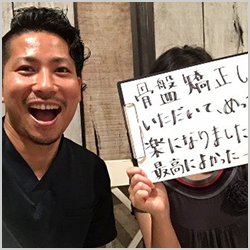 骨盤矯正し
いただいて、めっ
楽になりました
最高によかったー